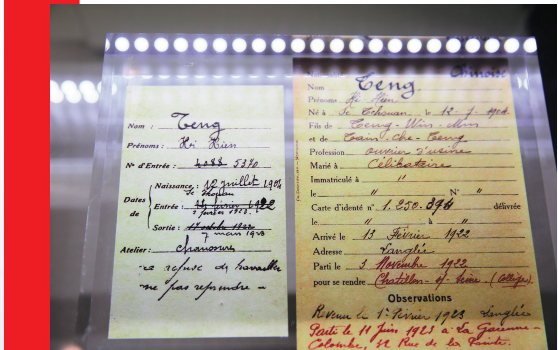 Nom : Teng
Prénoms : Hi Hien
N° d'Entrée : 5370
Naissance : 12 juillet 1904
Se Tchouan
Dates
de
Entrée :
2 février 1923
Sortie : 17 octobre 1922
7 mars 1923
Atelier : Chaussure
re refuse de travailler
ne pas reprendre –
Chinoise
Nom Teng.
Prénoms Hi-Hien
Né à Se Tchouan le 12-7-1904
Fils de Teng-Win-Min
et de Tain-Che-Teng
Profession ouvrier d'usine
Marié à Célibataire
Immatriculé à "
le " N° "
Carte d'identé n° 1.250.394 délivrée
le " à "
Arrivé le 13 Février 1922
Adresse Langlée
Parti le 3 Novembre 1922
pour se rendre Chatillon-s/-Seine (Collège)
Observations
Revenu le 1er Février 1923 Langlée
Parti le 11 Juin 1923 à La Garenne-
Colombe, 39 Rue de la Pointe.